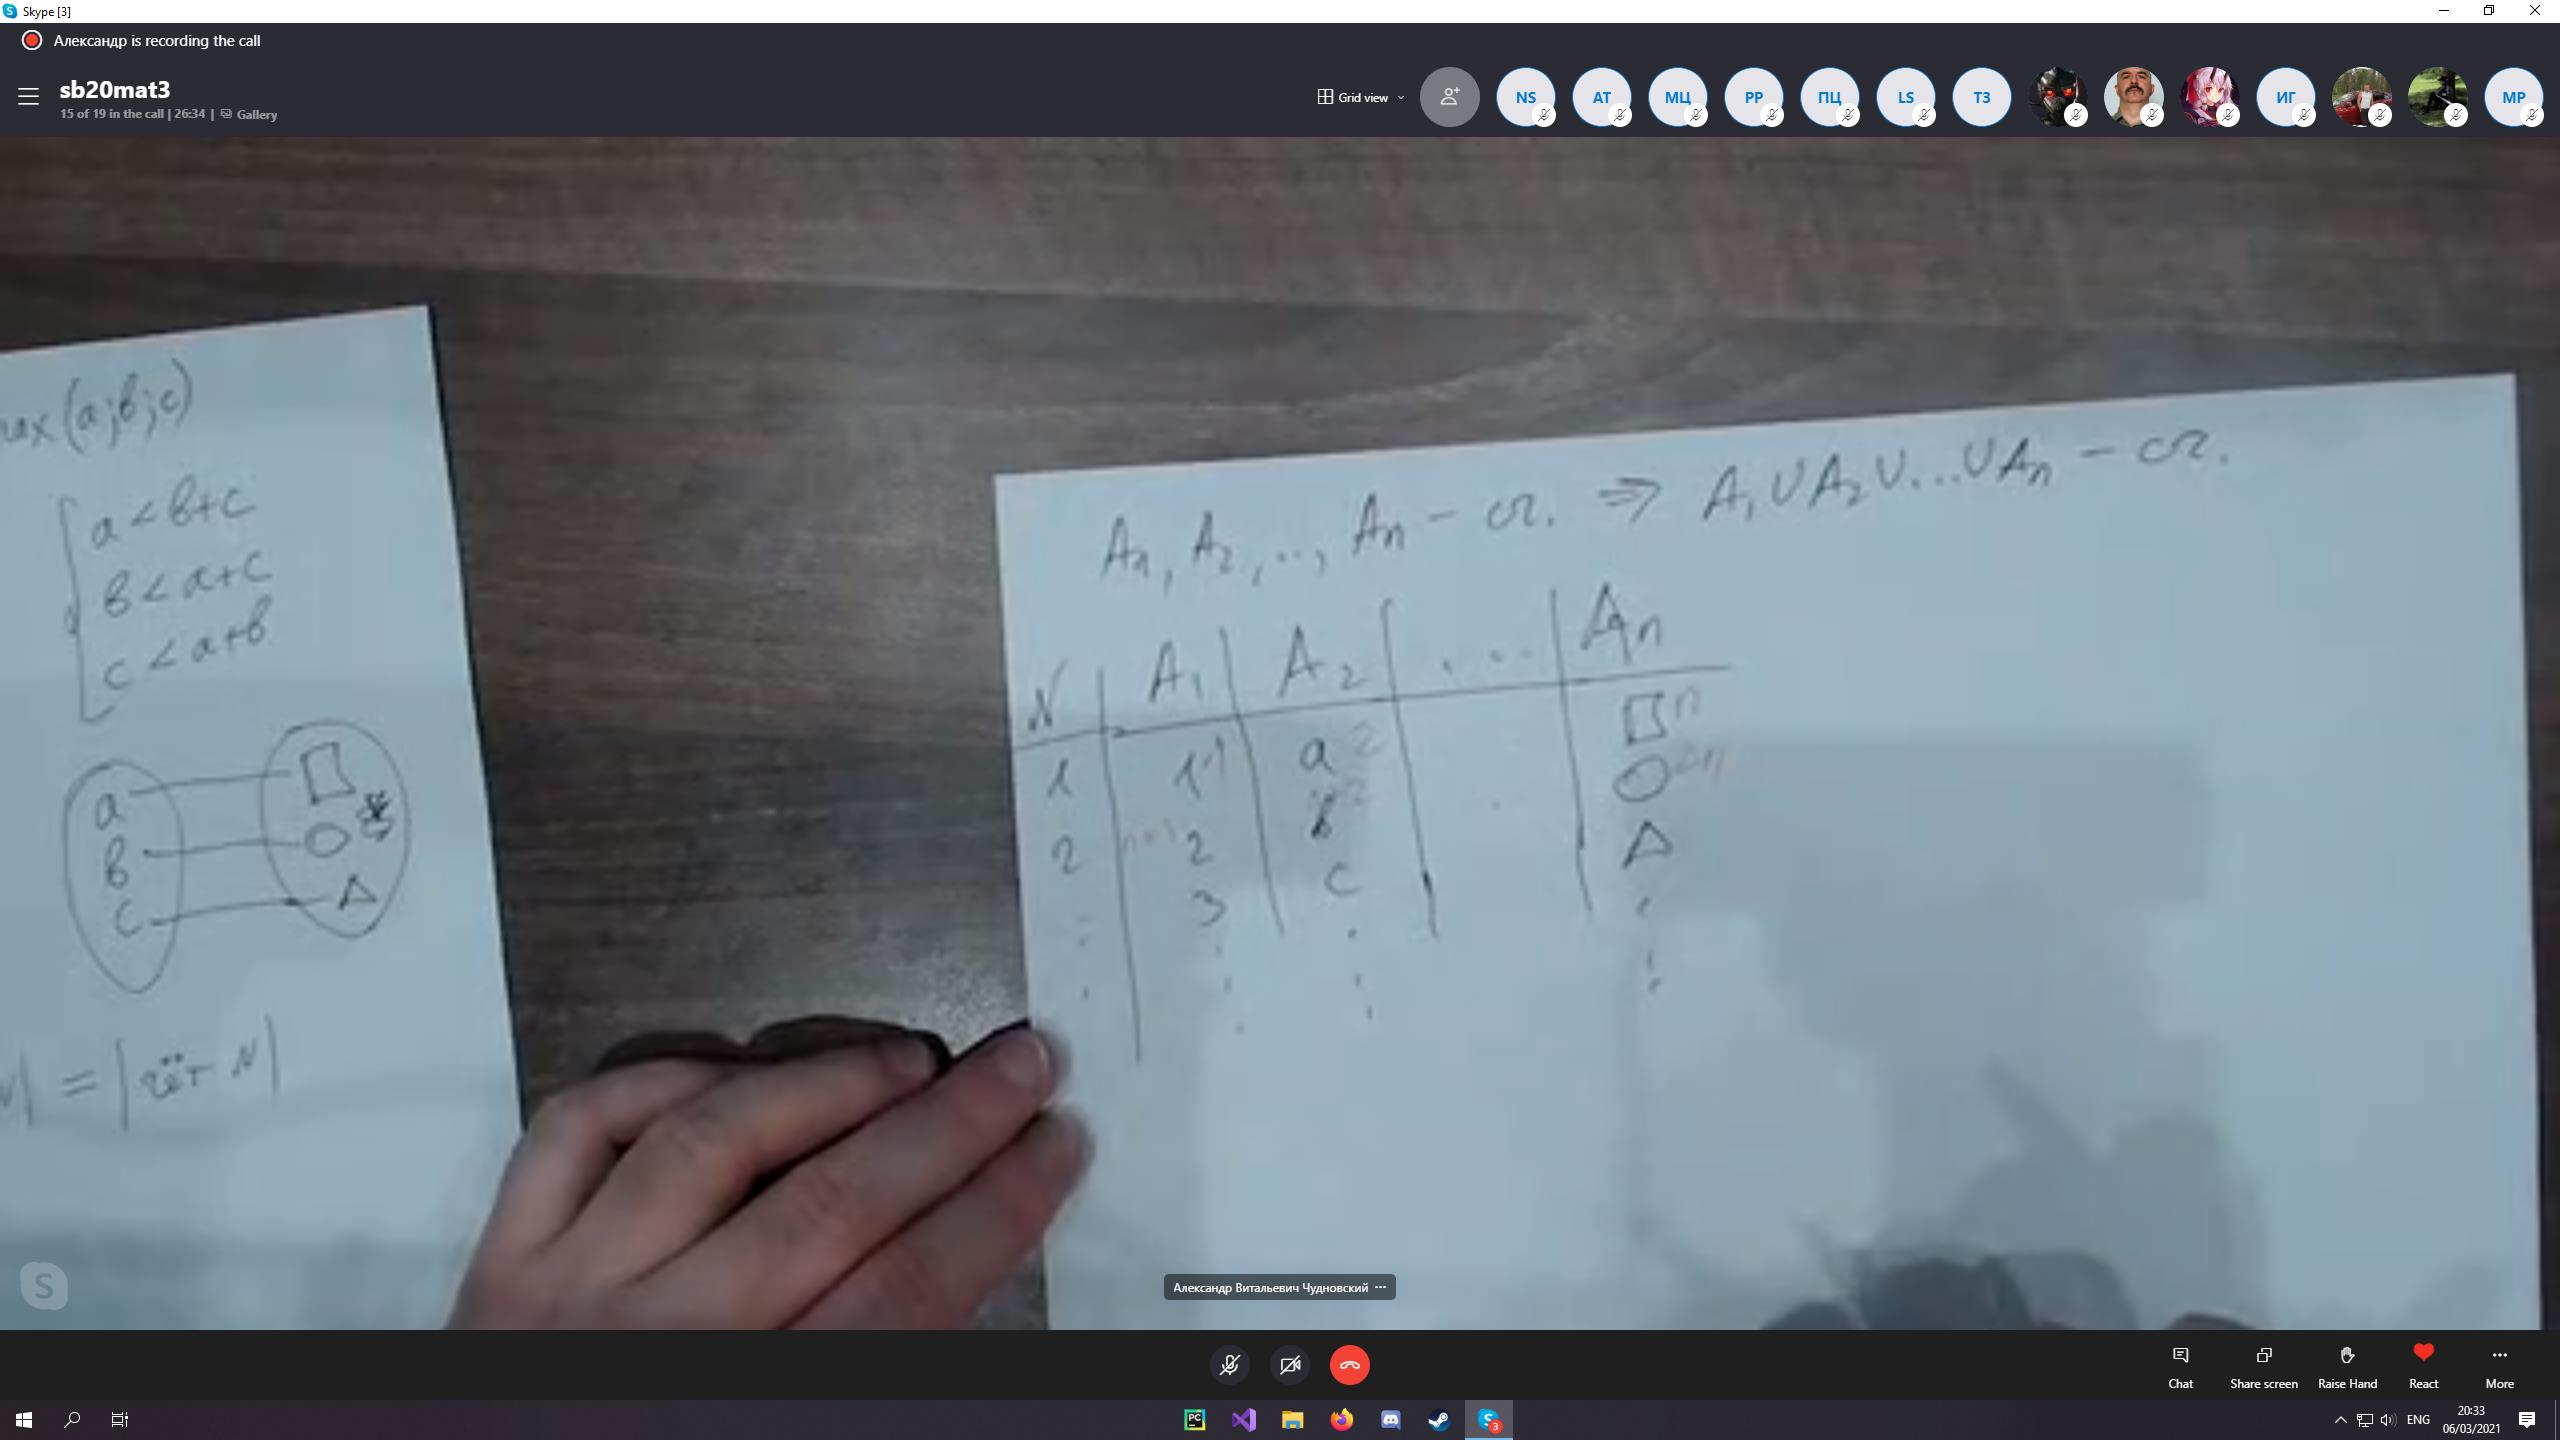 Skype [3]
Александр is recording the call
sb20mat3
15 of 19 in the call | 26:34 | Gallery
Grid view
NS
AT
МЦ
PP
ПЦ
LS
ТЗ
ИГ
MP
(a; b; c)
a < b+c
b < a+c
c < a+b
a
b
c
= | чёт N |
A₁, A₂, ..., Aₙ – сч. ⇒ A₁ ∪ A₂ ∪ ... ∪ Aₙ – сч.
N A₁ A₂ ... Aₙ
1 1 a
2 2 b
3 c
S
Александр Витальевич Чудновский ···
Chat
Share screen
Raise Hand
React
More
PC
S 3
ENG
20:33
06/03/2021